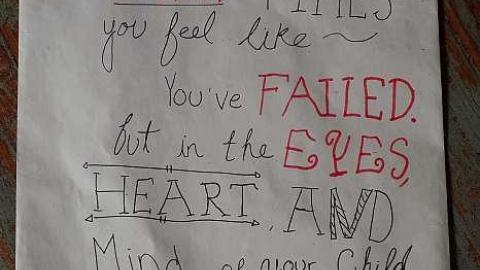 TIMES
you feel like ~
You've FAILED.
but in the EYES,
HEART, AND
Mind of your Child